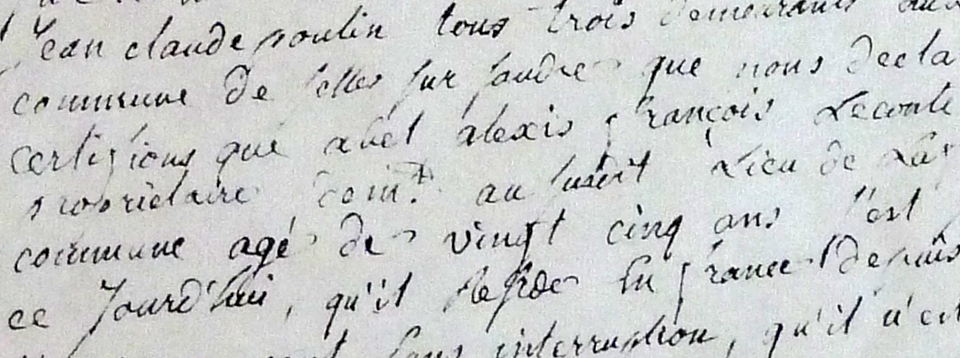 Jean claude poulin tous trois demeurants
commune de selles sur saudre que nous decla
certifions que abel alexis françois Leconte
propriétaire dem.t au susdit Lieu de La
commune agé de vingt cinq ans s'est
ce Jourd'hui, qu'il Reside En france depuis
sans interruption, qu'il n'est